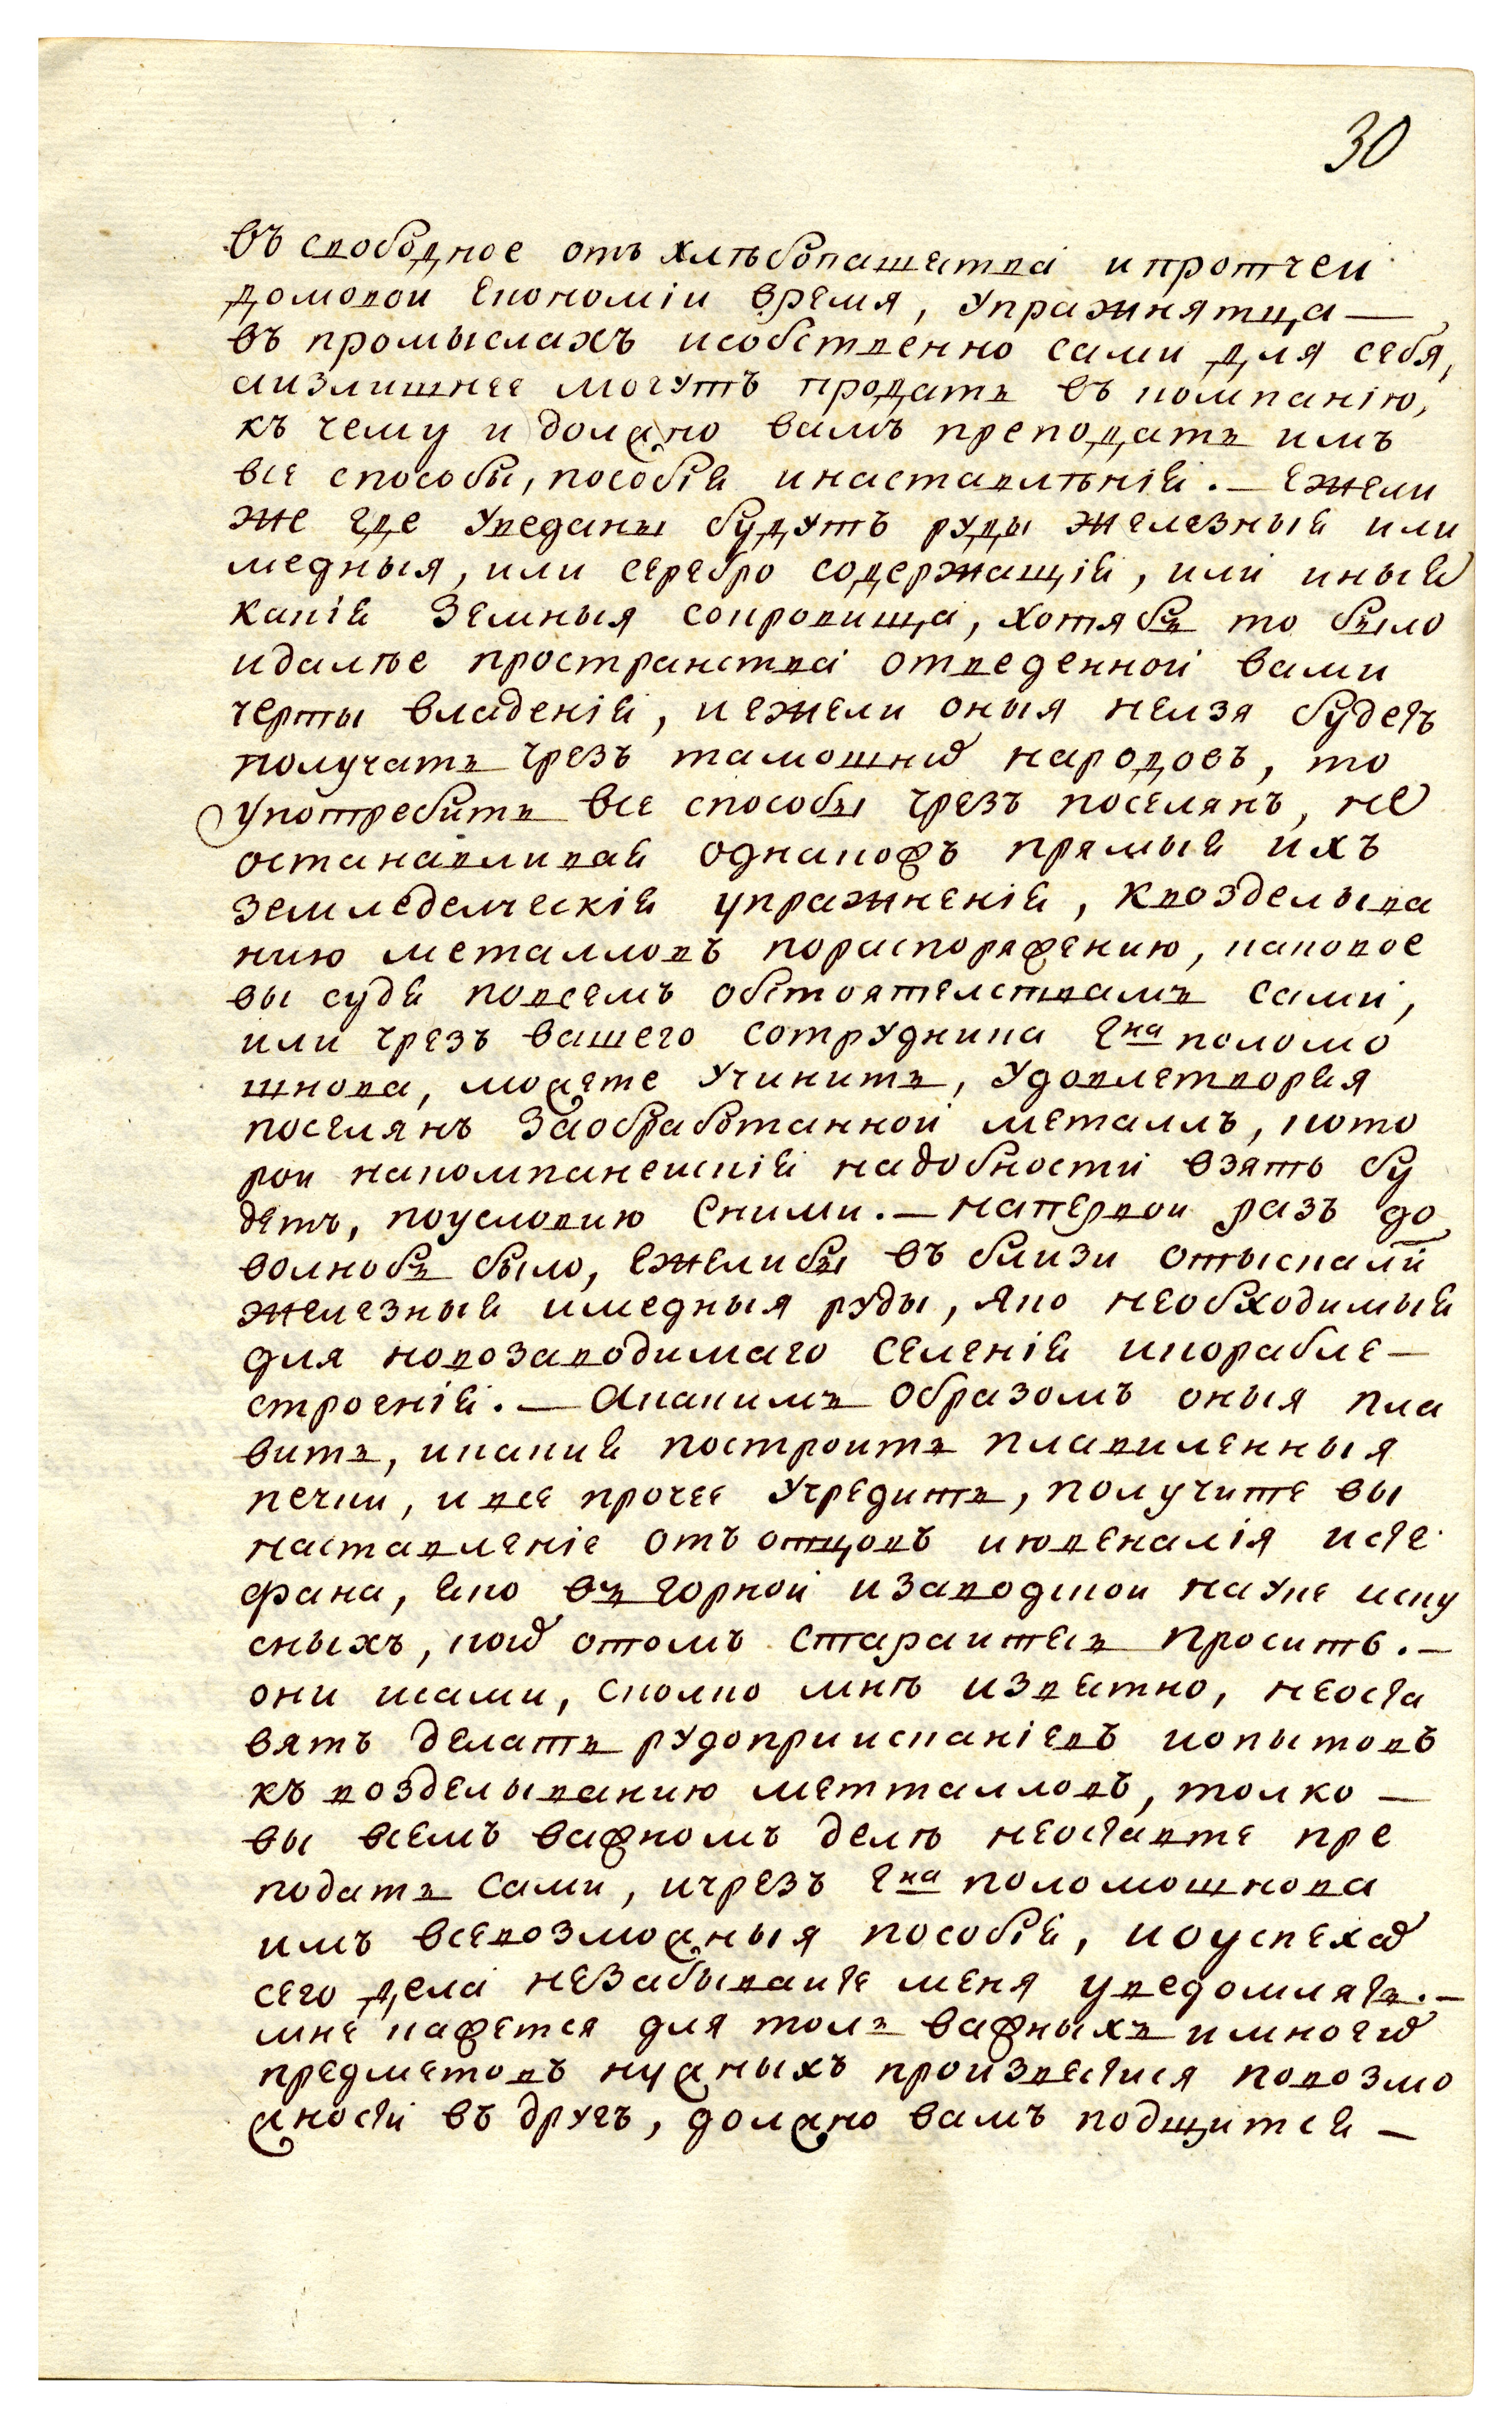 30
въ свободное отъ хлѣбопашества ипротчеи
домовои економіи время, упражнятца —
въ промыслахъ исобственно сами для себя,
аизлишнее могутъ продать въ компанію,
къ чему и должно вамъ преподать имъ
все способы, пособія инаставлѣнія. — Ежели
же где уведаны будутъ руды железныя или
медныя, или серебро содержащія, или иныя
какія земныя сокровища, хотябы то было
идалѣе пространства отведенной вами
черты владенія, и ежели оныя нелзя будетъ
получать чрезъ тамошнихъ народовъ, то
употребить все способы чрезъ поселянъ, не
останавливая однакожъ прямыя ихъ
земледелческія упражненія, квозделыва
нию металловъ пораспоряжению, каковое
вы судя повсемъ обстоятелствамъ сами,
или чрезъ вашего сотрудника Гна поломо
шнова, можете учинить, удовлетворяя
поселянъ заобработанной металлъ, кото
рои накомпанеискія надобности взятъ бу
детъ, поусловию сними. — напервои разъ до
волнобъ было, ежелибы въ близи отыскали
железныя имедныя руды, яко необходимыя
для новозаводимаго селенія икорабле —
строенія. — Акакимъ образомъ оныя пла
вить, икакия построить плавиленныя
печки, и все прочее учредить, получите вы
наставленіе отъ отцовъ июреналія исте
фана, яко въ горной изаводскои науке иску
сныхъ, коихъ отомъ стараитесь просить. —
они исами, сколко мнѣ известно, неоста
вятъ делать рудоприисканіевъ иопытовъ
къ возделыванию метталловъ, толко —
вы всемъ важномъ делѣ неоставте пре
подать сами, ичрезъ Гна поломошнова
имъ всевозможныя пособія, иоуспехахъ
сего дела незабываите меня уведомлять. —
мне кажется для толь важныхъ имногихъ
предметовъ нужныхъ произвестися повозмо
жности въ другъ, должно вамъ подщится —